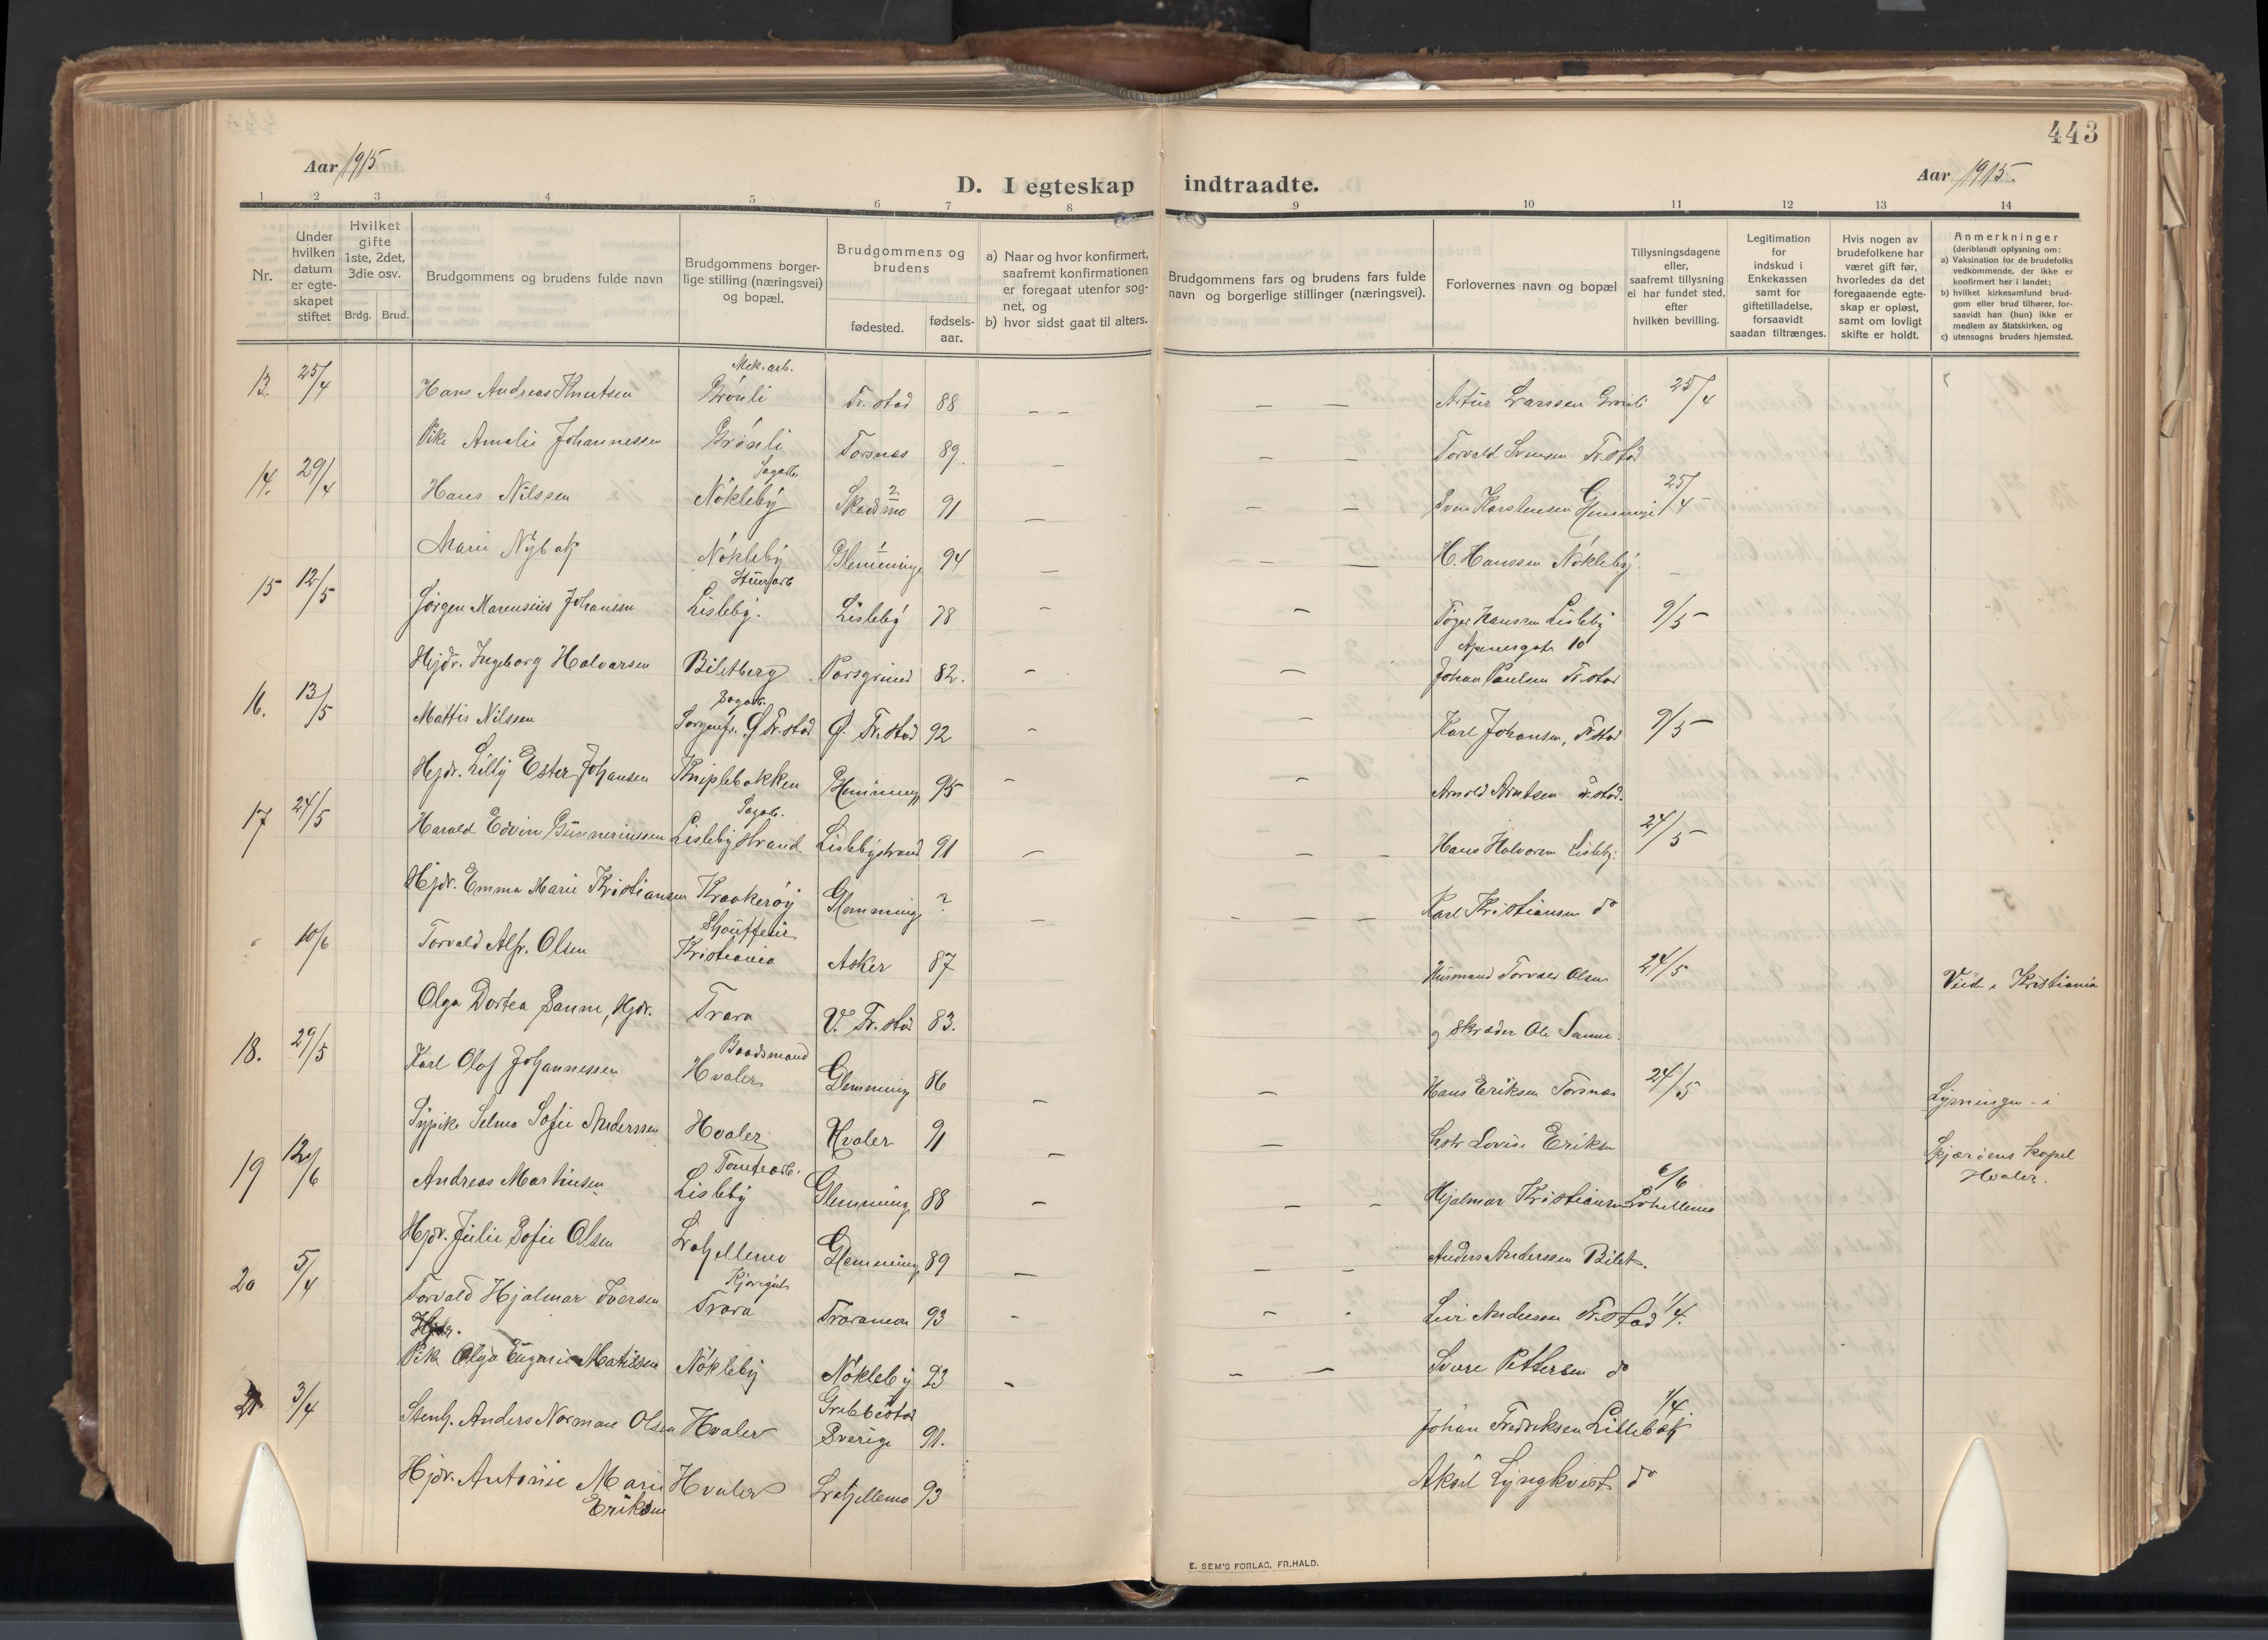 443
Aar 1915
Aar 1915.
D. I egteskap indtraadte.
1 2 3 4 5 6 7 8 9 10 11 12 13 14
Nr.
Under hvilken datum er egteskapet stiftet
Hvilket gifte 1ste, 2det, 3die osv.
Brdg. Brud.
Brudgommens og brudens fulde navn
Brudgommens borgerlige stilling (næringsvei) og bopæl.
Brudgommens og brudens
fødested.
fødselsaar.
a) Naar og hvor konfirmert, saafremt konfirmationen er foregaat utenfor sognet, og
b) hvor sidst gaat til alters.
Brudgommens fars og brudens fars fulde navn og borgerlige stillinger (næringsvei).
Forlovernes navn og bopæl
Tillysningsdagene eller, saafremt tillysning ei har fundet sted, efter hvilken bevilling.
Legitimation for indskud i Enkekassen samt for giftetilladelse, forsaavidt saadan tiltrænges.
Hvis nogen av brudefolkene har været gift før, hvorledes da det foregaaende egteskap er opløst, samt om lovligt skifte er holdt.
Anmerkninger
(deriblandt oplysning om:
a) Vaksination for de brudefolks vedkommende, der ikke er konfirmert her i landet;
b) hvilket kirkesamfund brudgom eller brud tilhører, forsaavidt han (hun) ikke er medlem av Statskirken, og
c) utensogns bruders hjemsted.
Mek. arb.
13. 25/4 Hans Andreas Knutsen Grönli Fr. stad 88 — — — — Artur Larssen Grönli 25/4
Pike Amalie Johannessen Grönli Torsnæs 89. — — — Torvald Svensen Fr.stad
Sagarb.
14. 29/4 Hans Nilssen Nökleby Skedsmo ? 91 — — — Sven Karstensen Glemminge 25/4
Marie Nybak Nökleby Glemminge 94 — — — H. Hanssen Nökleby.
15 12/5 Jörgen Marensius Johansen Lisleby. Lisleby 78 — — Hanssen Lisleby 9/5
10
Hjdr. Ingeborg Halvorsen Biletberg Porsgrund 82. — — Johan Paulsen Fr.stad
Sagarb.
16. 13/5 Mattis Nilssen Sorgenfr. Ø Fr.stad Ø. Fr.stad 92 — — Karl Johansen, Fr.stad 9/5
Hjdr. Lilly Ester Johansen Kniplebakken Glemminge 95 — — Arnold Arntsen Fr.stad.
Sagarb.
17 24/5 Harald Edvin Gunneriussen Lisleby strand Lislebystrand 91 — — — Hans Halvorsen Lisleby. 24/5
Hjdr. Emma Marie Kristiansen Kraakeröy Glemminge ? — — — — Karl Kristiansen do
Schauffeur
10/6 Torvald Alfr. Olsen Kristiania Asker 87 Husmand Torvald Olsen 24/5 Viet i Kristiania
Olga Dortea Sanne, Hjdr. Trara V. Fr. stad 83. og Skræder Ole Sanne.
Baadsmand
18. 29/5 Karl Olof Johannessen Hvaler Glemminge 86 — — Hans Eriksen Torsnæs 24/5 Lysningen i
Sypike Selma Sofie Anderssen Hvaler Hvaler 91 — — Lovise Eriksen Skjæröens Kapel
Hvaler.
Tomtearb.
19 12/6 Andreas Martinsen Lisleby Glemminge 88 — — — Hjalmar Kristiansen 6/6
Hjdr. Julie Sofie Olsen Glemminge 89 — — — Anders Anderssen Bilet.
20 5/4 Torvald Hjalmar Iversen Trara Traramon 93 — — — Andersen Fr.stad 1/4.
Hjdr.
Pike Olga Eugenie Matissen Nökleby Nökleby 93 — — — Sverre Pettersen do
Grebbestad
21 3/4 Stenh. Anders Norman Olsen Hvaler Sverige 91. Johan Fredriksen Lillebæk 1/4
Hjdr. Antonie Marie Hvaler 93 Aksel Lyngkvist do
Eriksen
E. SEM'S FORLAG, FR.HALD.